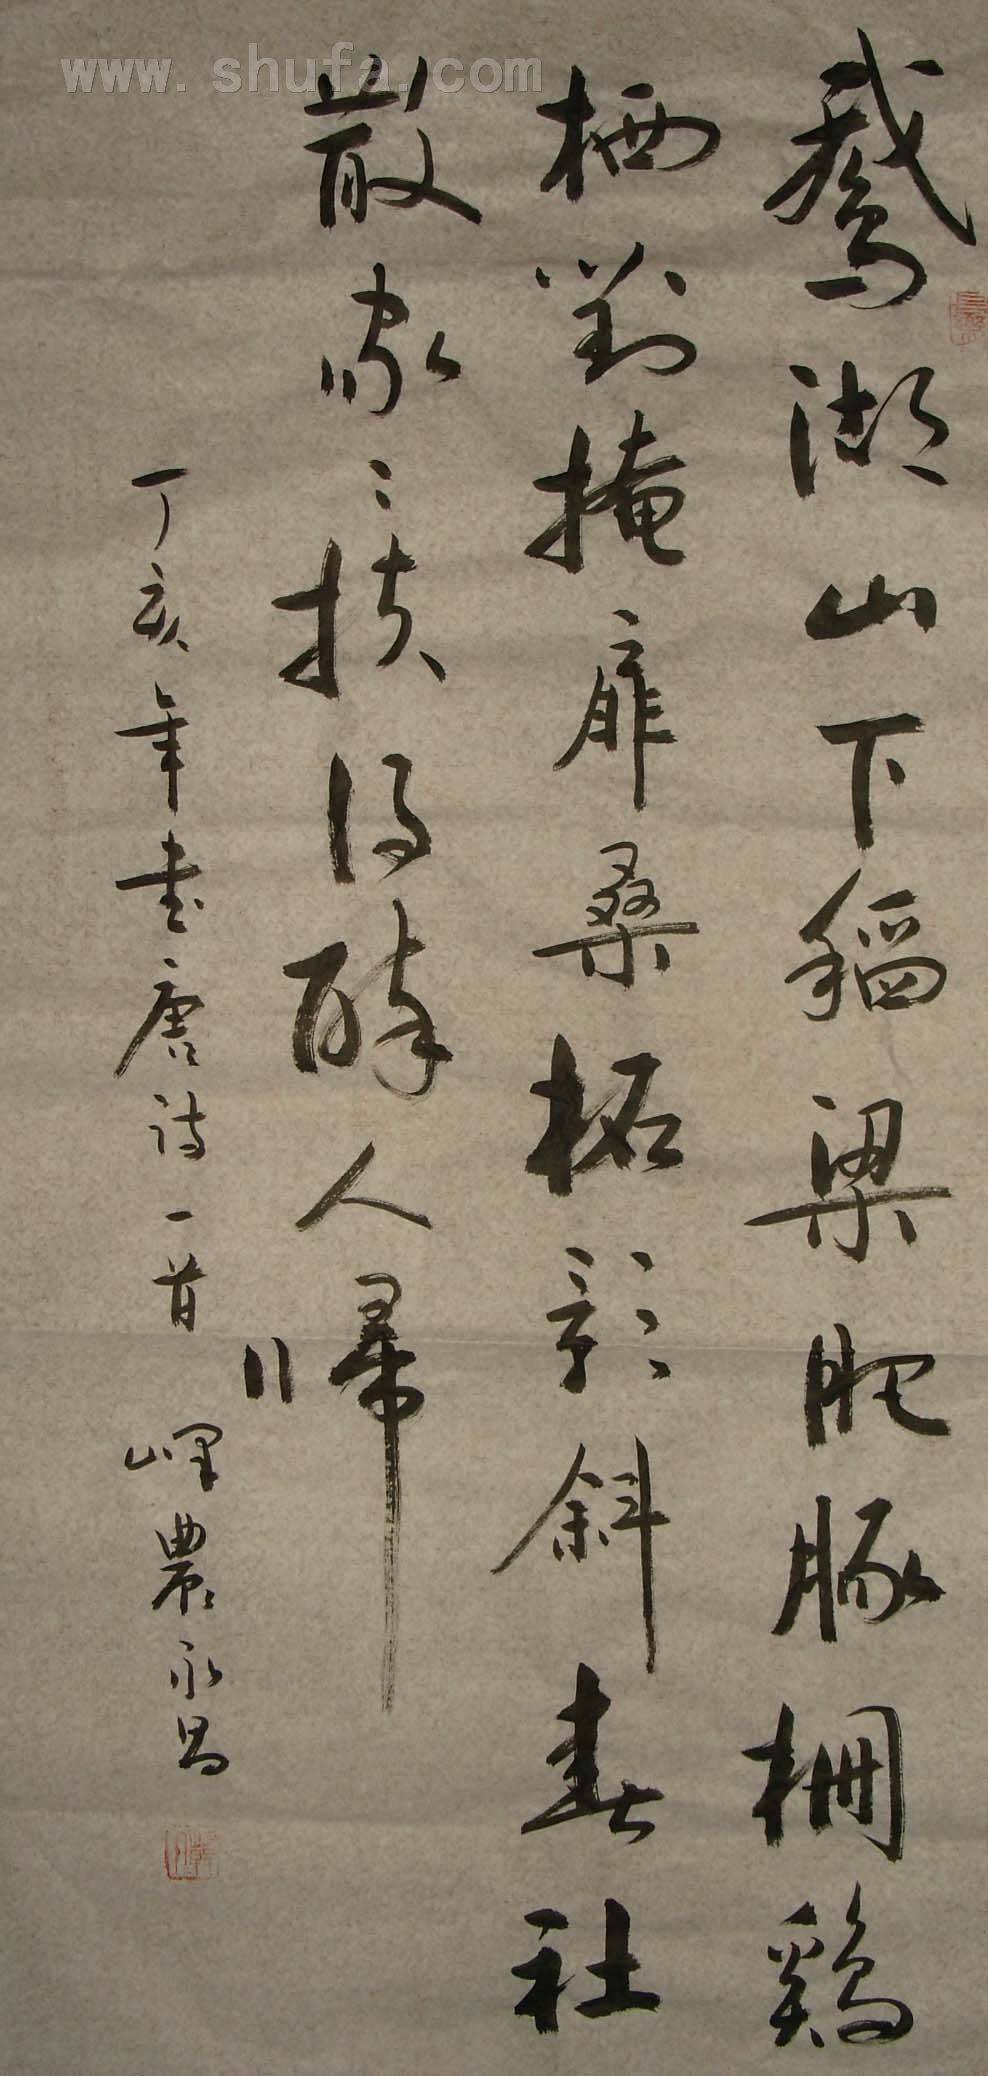 www.shufa.com
鹅湖山下稻粱肥豚栅鸡
栖對掩扉桑柘影斜春社
散家〻扶得醉人歸
丁亥年書唐诗一首
嶧農永昌